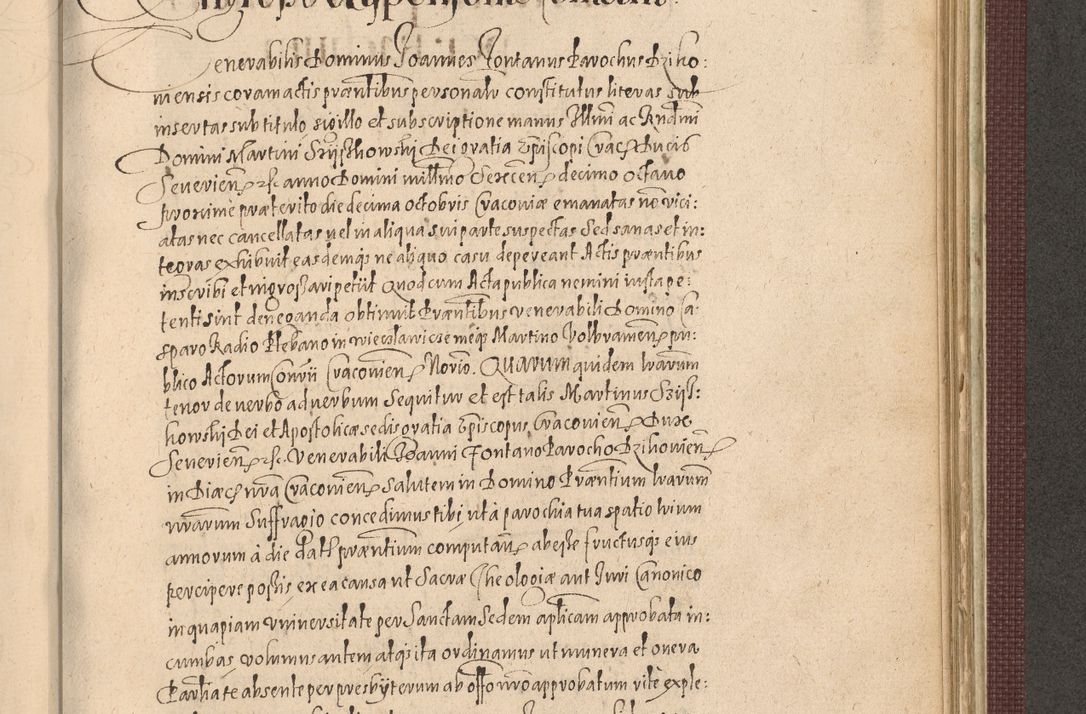 Venerabilis Dominus Joannes Fontanus Parochus Dziko:
niensis coram actis præntibus personalr constitutus literas sub
insertas sub titulo sigillo et subscriptione manus Illmi ac Rndmi
Domini Martini Szÿszkowski Dei gratia Episcopi Crac: Ducis
Severien: etc anno Domini millmo Sexcen: decimo octavo
proxime præterito die decima octobris Cracoviæ emanatas no vici:
atas nec cancellatas vel in aliqua sui parte suspectas Sed sanas et in:
tegras exhibuit easdemqs ne aliquo casu depereant Actis præntibus
inscribi et ingrossari petiit Quod cum Acta publica nemini iusta pe:
tenti sint deneganda obtinuit Præntibus venerabili Domino Ca:
sparo Radio Plebano in wieclawice meqs Martino Volbramen: pu:
blico Actorum Consrii Cracovien: Norio. QUARUM quidem lrarum
tenor de verbo ad verbum Sequitur et est talis Martinus Szÿsz:
kowski Dei et Apostolicæ sedis gratia Episcopus Cracovien: Dux
Severien: etc. Venerabili Joanni Fontano Parocho Dzikovien:
in Diæc: nra Cracovien: Salutem in Domino Præntium lrarum
nrarum Suffragio concedimus tibi ut à parochia tua spatio trium
annorum à die dat: præntium computan: abesse fructusqs eius
percipere possis ex ea causa ut Sacræ Theologiæ aut Juri Canonico
in quapiam vniversitate per Sanctam Sedem aplicam approbata in:
cumbas, volumus autem atqs ita ordinamus ut munera et onera
Parlia te absente per presbÿterum ab offo nro approbatum rite exple: